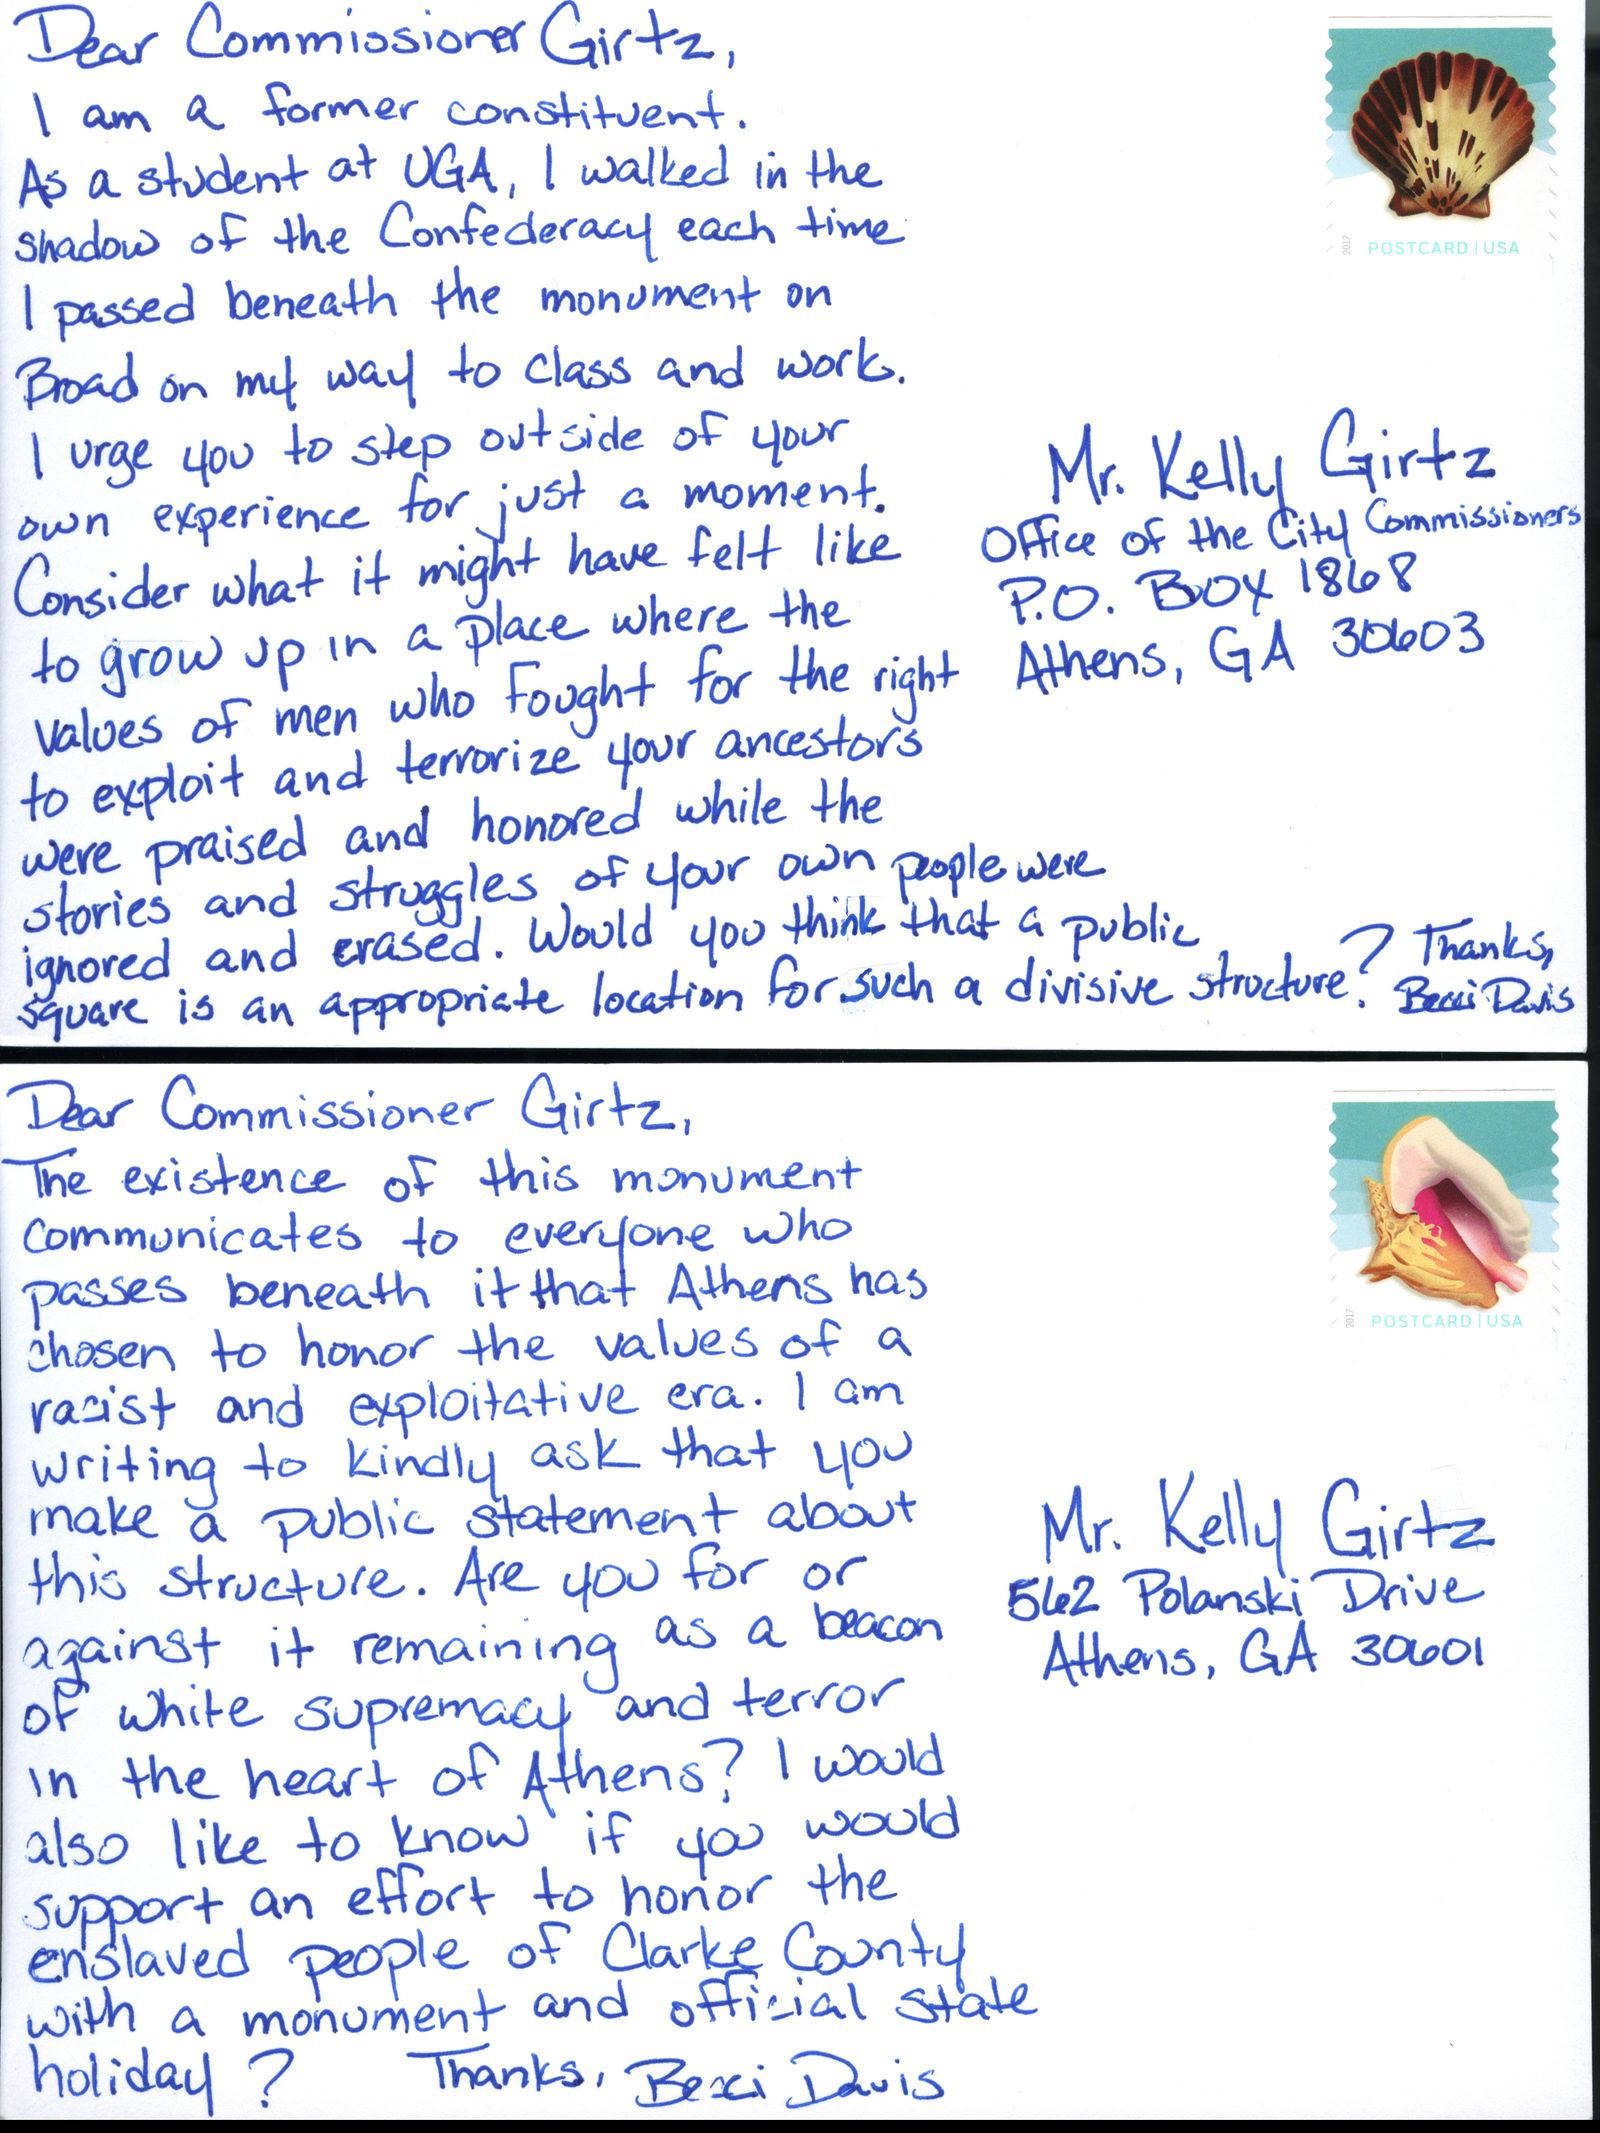 Dear Commissioner Girtz,
I am a former constituent.
As a student at UGA, I walked in the
shadow of the Confederacy each time
I passed beneath the monument on
Broad on my way to class and work.
I urge you to step outside of your
own experience for just a moment.
Consider what it might have felt like
to grow up in a place where the
values of men who fought for the right
to exploit and terrorize your ancestors
were praised and honored while the
stories and struggles of your own people were
ignored and erased. Would you think that a public
square is an appropriate location for such a divisive structure?
Thanks,
Becci Davis
2017
POSTCARD | USA
Mr. Kelly Girtz
Office of the City Commissioners
P.O. Box 1868
Athens, GA 30603
Dear Commissioner Girtz,
The existence of this monument
communicates to everyone who
passes beneath it that Athens has
chosen to honor the values of a
racist and exploitative era. I am
writing to kindly ask that you
make a public statement about
this structure. Are you for or
against it remaining as a beacon
of white supremacy and terror
in the heart of Athens? I would
also like to know if you would
support an effort to honor the
enslaved people of Clarke County
with a monument and official state
holiday? Thanks, Becci Davis
2017
POSTCARD | USA
Mr. Kelly Girtz
562 Polanski Drive
Athens, GA 30601